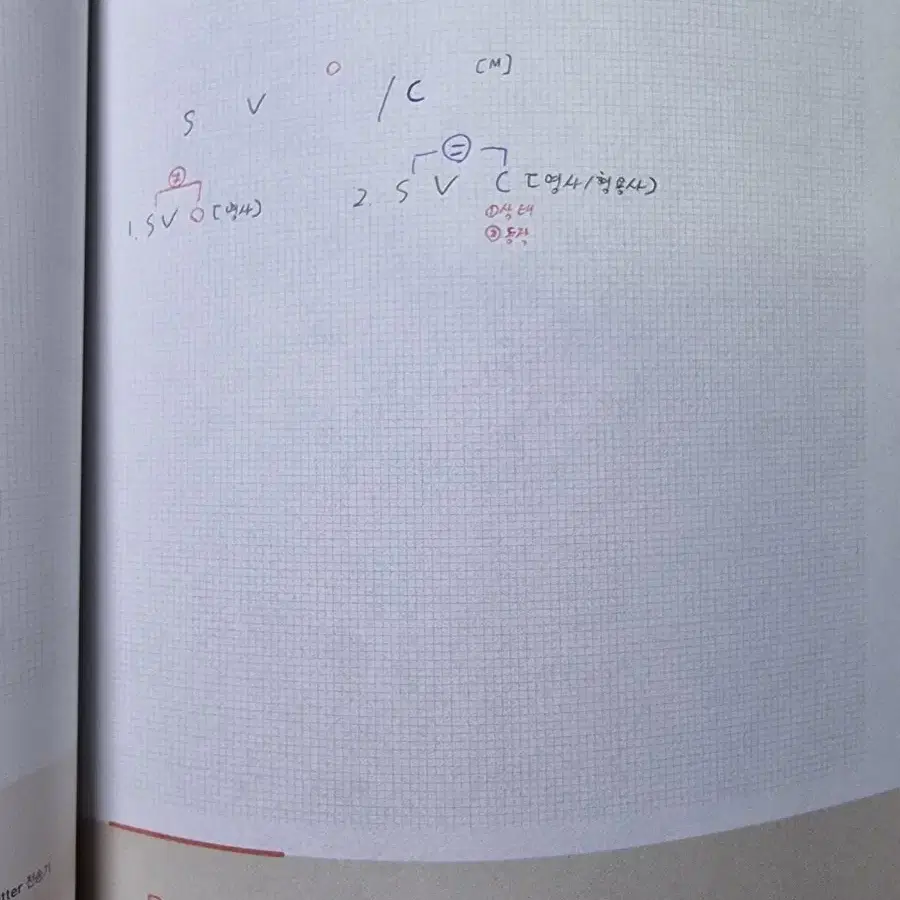 S V O / C [M]
≠
1. S V O [명사]
=
2. S V C [명사/형용사]
①상태
②동작
tter 전송기